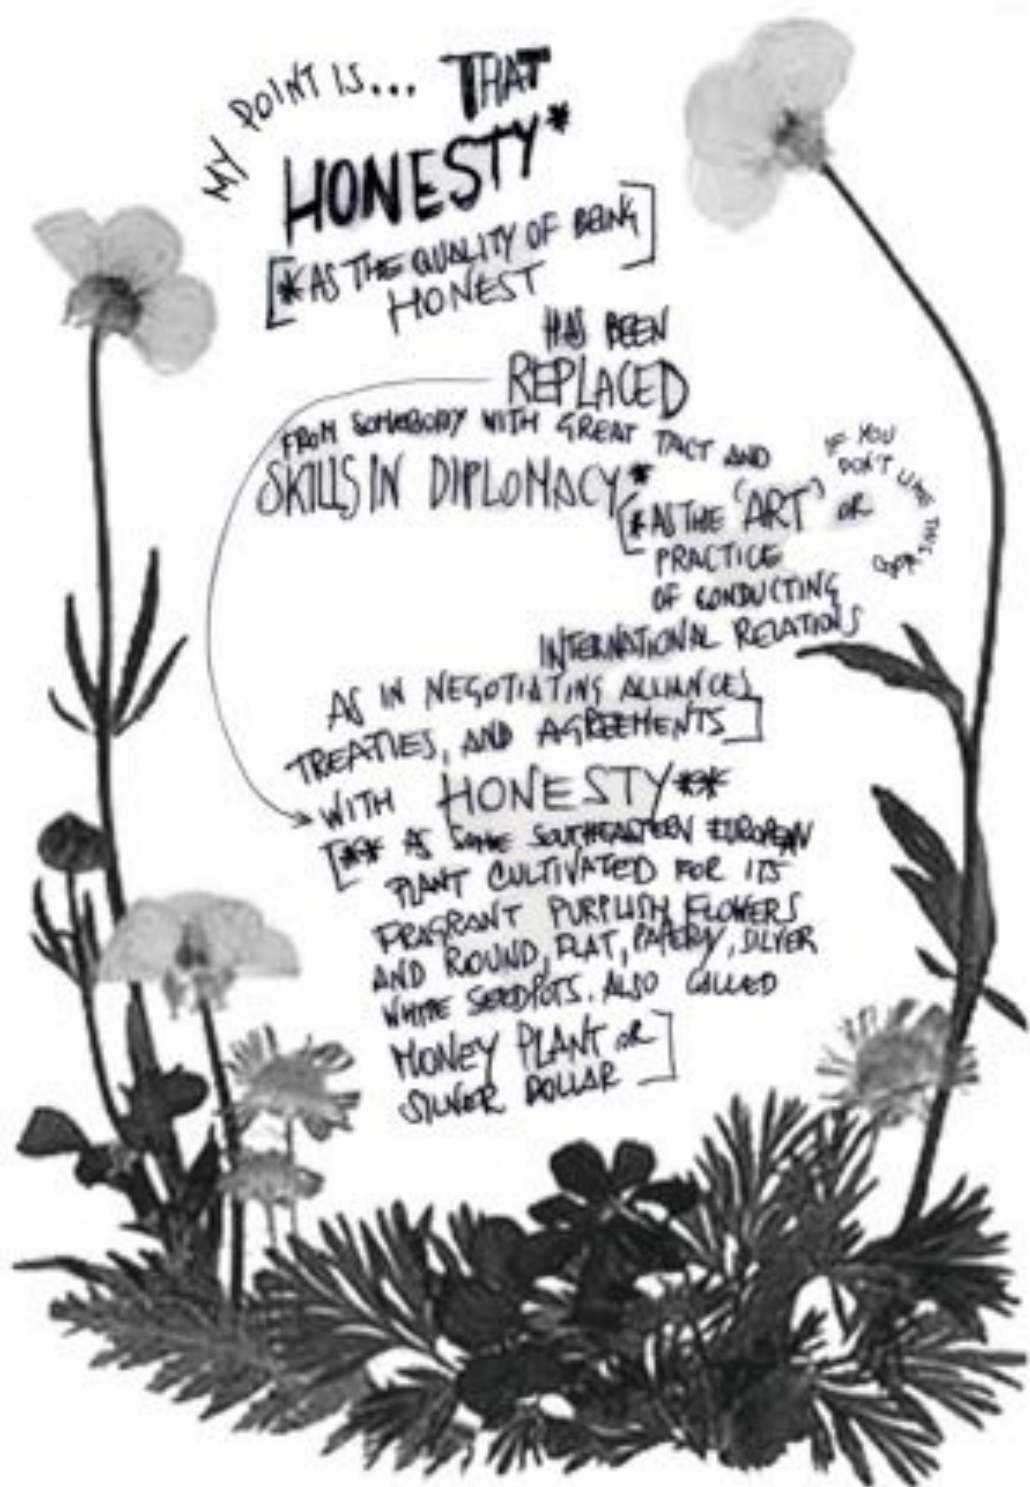 MY POINT IS... THAT
HONESTY*
[*AS THE QUALITY OF BEING]
HONEST
HAS BEEN
REPLACED
FROM SOMEBODY WITH GREAT TACT AND
SKILLS IN DIPLOMACY*
[*AS THE 'ART' OR
IF YOU
DON'T LIKE THIS
PRACTICE
OF CONDUCTING
INTERNATIONAL RELATIONS
AS IN NEGOTIATING ALLIANCES,
TREATIES, AND AGREEMENTS]
WITH HONESTY**
[** AS SOME SOUTHEASTERN EUROPEAN
PLANT CULTIVATED FOR ITS
FRAGRANT PURPLISH FLOWERS
AND ROUND, FLAT, PAPERY, SILVER
WHITE SEEDPOTS. ALSO CALLED
MONEY PLANT OR
SILVER DOLLAR]